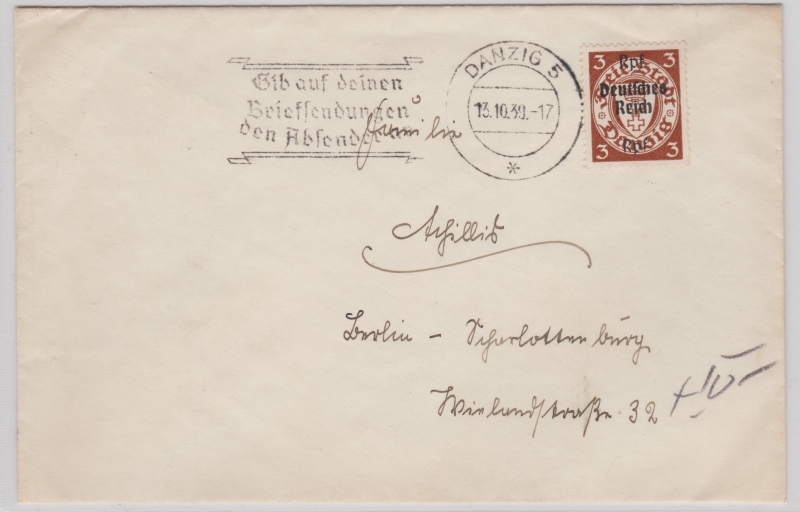 Gib auf deinen
Briefsendungen
den Absender
DANZIG 5
13.10.39.-17
*
3 Rpf. 3
Deutsches
Reich
Freie Stadt
Danzig
3 Rpf. 3
Familie
Achillis
Berlin - Scharlottenburg
Wielandstraße 32